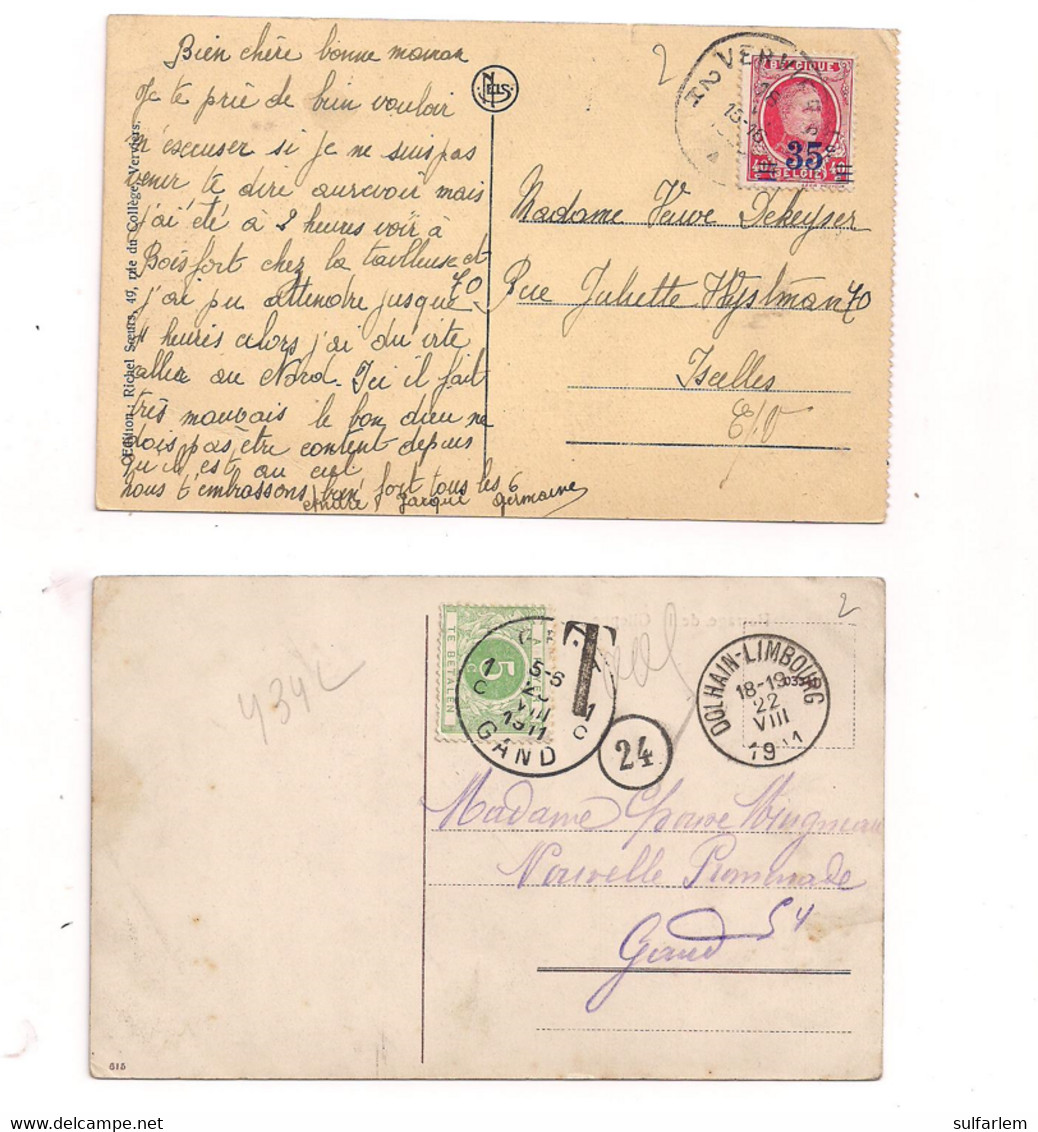 Bien chère bonne maman
Je te prie de bien vouloir
m'excuser si je ne suis pas
venir te dire aurevoir mais
j'ai été à 2 heures voir à
Boisfort chez la tailleuse et
j'ai pu attendre jusque
4 heures alors j'ai du vite
aller au Nord. Ici il fait
très mauvais le bon dieu ne
dois pas être content depuis
qu'il est au ciel
nous t'embrassons bien fort tous les 6
André Jacques Germaine
Edition : Richel Sœurs, 49, rue du Collège, Verviers.
NELS
2
VERVIERS
15-16
BELGIQUE
35
BELGIE
Madame Veuve Dekeyser
70 Rue Juliette Wytsman 70
Ixelles
E/V
2
4342
5
C
TE BETALEN
T
GENT
1 5-6
C C
VIII
1911
GAND
24
DOLHAIN-LIMBOURG
18-19
22
VIII
1911
Madame
Nouvelle Promenade
54
Gand
615
delcampe.net
sulfarlem